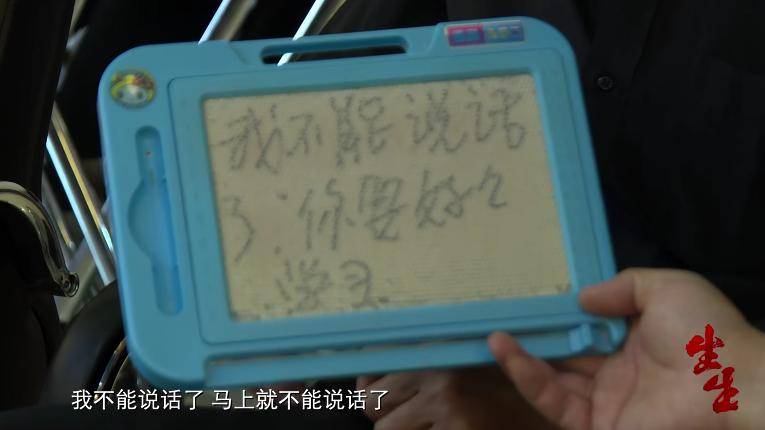 我不能说话
了.你要好好
学习
我不能说话了 马上就不能说话了
生生